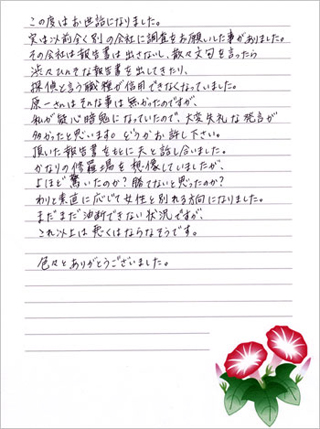 この度はお世話になりました。
実は以前全く別の会社に調査をお願いした事がありました。
その会社は報告書は出さないし、散々文句を言ったら
渋々ひどすぎな報告書を出してきたり、
探偵と言う職種が信用できなくなっていました。
原一さんはそんな事は無かったのですが、
私が疑心暗鬼になっていたので、大変失礼な発言が
多かったと思います。どうかお許し下さい。
頂いた報告書をもとに夫と話し合いました。
かなりの修羅場を想像していましたが、
よほど驚いたのか?勝てないと思ったのか?
わりと素直に応じて女性と別れる方向になりました。
まだまだ油断できない状況ですが、
これ以上は悪くはならなそうです。
色々とありがとうございました。